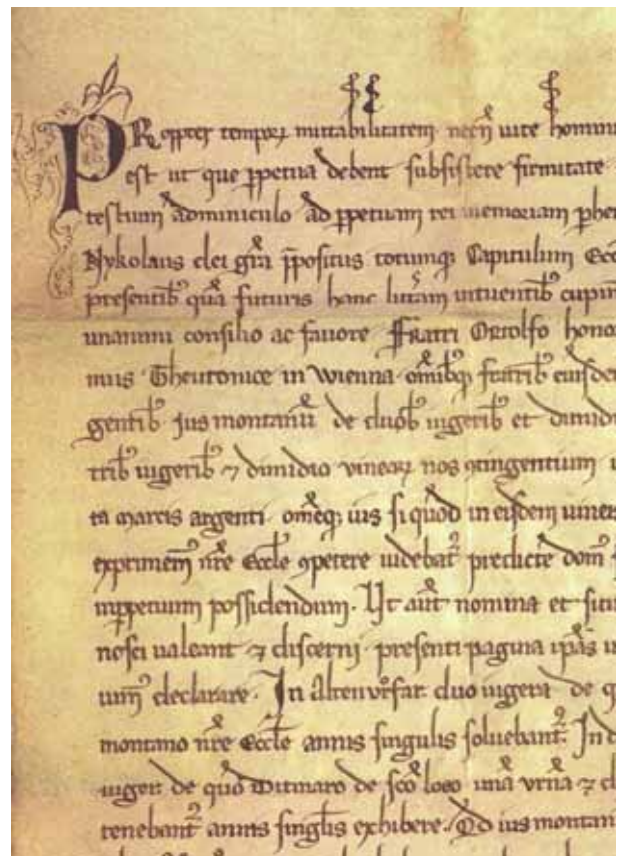 PRopter tempoꝝ mutabilitatem necn̄ uite hominu
est ut que ꝑpetua debent subsistere firmitate
testium adminiculo ad ꝑpetuam rei memoriam ꝑhen
Nykolaus dei gr̄a p̄positus totumqꝫ Capitulum Ecc
presentibꝰ quā futuris hanc litt̄am intuentibꝰ cupim
unanimi consilio ac fauore. Fratri Ortolfo hono
mus Theutonice in Wienna om̄ibꝰqꝫ fratribꝰ eiusde
gentibꝰ Jus montanū de duobꝰ iugeribꝰ et dimidi
tribꝰ iugeribꝰ ⁊ dimidio vineaꝝ nos ꝯtingentium
ta marcis argenti. om̄eqꝫ ius si quod in eisdem uineis
exprimem̄ nr̄e Eccl̄e ꝯpetere uidebat᷑ predicte dom̄
inꝑpetuum possidendum. Ut aūt nomina et situ
nosci ualeant ⁊ discerni presenti pagina ip̄as
uimꝰ declarare. In Altenvrfar duo iugera de q
montano nr̄e Eccl̄e annis singulis soluebant᷑. In
iuger de quo Ditmaro de sc̄o loco una vrna ⁊ d
tenebant᷑ annis singl̄is exhibere. Qd ius montani